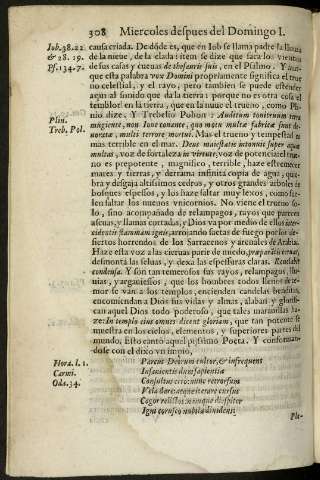 308 Miercoles despues del Domingo I.
Iob. 38. 22. causa criada. De dōde es, que en Iob se llama padre la lluuia
& 28. 29. de la nieue, de la elada: item se dize que saca los vientos
Ps. 134. 7. de sus casas y cueuas de thesauris suis, en el Psalmo. Y
que esta palabra vox Domini propriamente significa el true
no celestial, y el rayo, pero tambien se puede estender
aqui al sonido que da la tierra: porque no es otra cosa el
temblor en la tierra, que en la nuue el trueno, como Pli-
Plin. nio dize. Y Trebelio Polion: Auditum tonitruum terra
Treb. Pol. mugiente, non Ioue tonante, quo motu multæ fabricæ sunt de-
uoratæ, multi terrore mortui. Mas el trueno y tempestad es
mas terrible en el mar. Deus maiestatis intonuit super aquas
multas, voz de fortaleza in virtute, voz de potencia: el true-
no es prepotente, magnifico, terrible, haze estremecer
mares y tierras, y derrama infinita copia de agua, que-
bra y desgaja altissimos cedros, y otros grandes arboles de
bosques espessos, y los haze saltar muy lexos, como sue-
len saltar los nueuos vnicornios. No viene el trueno so-
lo, sino acompañado de relampagos, rayos que parecen
asenas, y llamas cortadas, y Dios va por medio de ellos inter-
cidentis flammam ignis, arrojando saetas de fuego por los de-
siertos horrendos de los Sarracenos y arenales de Arabia.
Haze esta voz a las cieruas parir de miedo, præparātis ceruas,
desmonta las seluas, y dexa las espessuras claras. Reuelabit
condensa. Y son tan temerosos sus rayos, relampagos, llu-
uias, y arguiestos, que los hombres todos llenos de te-
mor se van a los templos, encienden candelas benditas,
encomiendan a Dios sus vidas y almas, alaban y glorifi-
can aquel Dios todo poderoso, que tales marauillas ha-
ze: In templo eius omnes dicent gloriam, que tan potente se
muestra en los cielos, elementos, y superiores partes del
mundo. Esto cantó aquel pijssimo Poeta. Y conforman-
dose con el dixo vn impio,
Hora. l. 1. Parcus Deorum cultor, & infrequens
Carmi. Insanientis dum sapientiæ
Oda. 34. Consultus erro: nunc retrorsum
Vela dare, atque iterare cursus
Cogor relictos: namque diespiter
Igni corusco nubila diuidens
Ple-